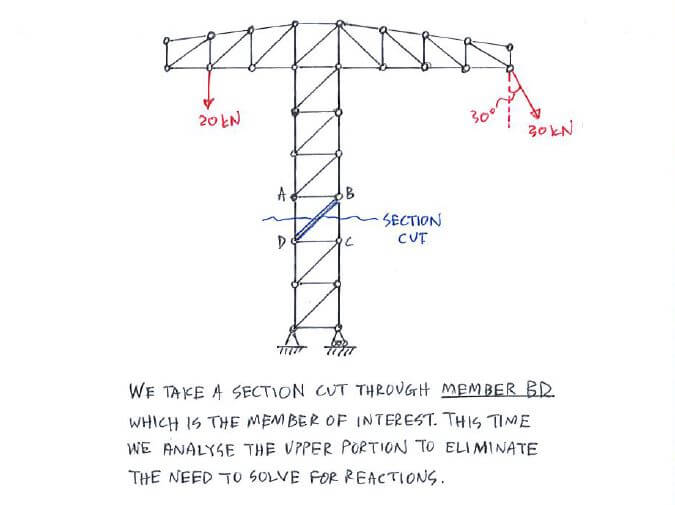 20 kN
30°
30 kN
A
B
SECTION
CUT
D
C
WE TAKE A SECTION CUT THROUGH MEMBER BD
WHICH IS THE MEMBER OF INTEREST. THIS TIME
WE ANALYSE THE UPPER PORTION TO ELIMINATE
THE NEED TO SOLVE FOR REACTIONS.